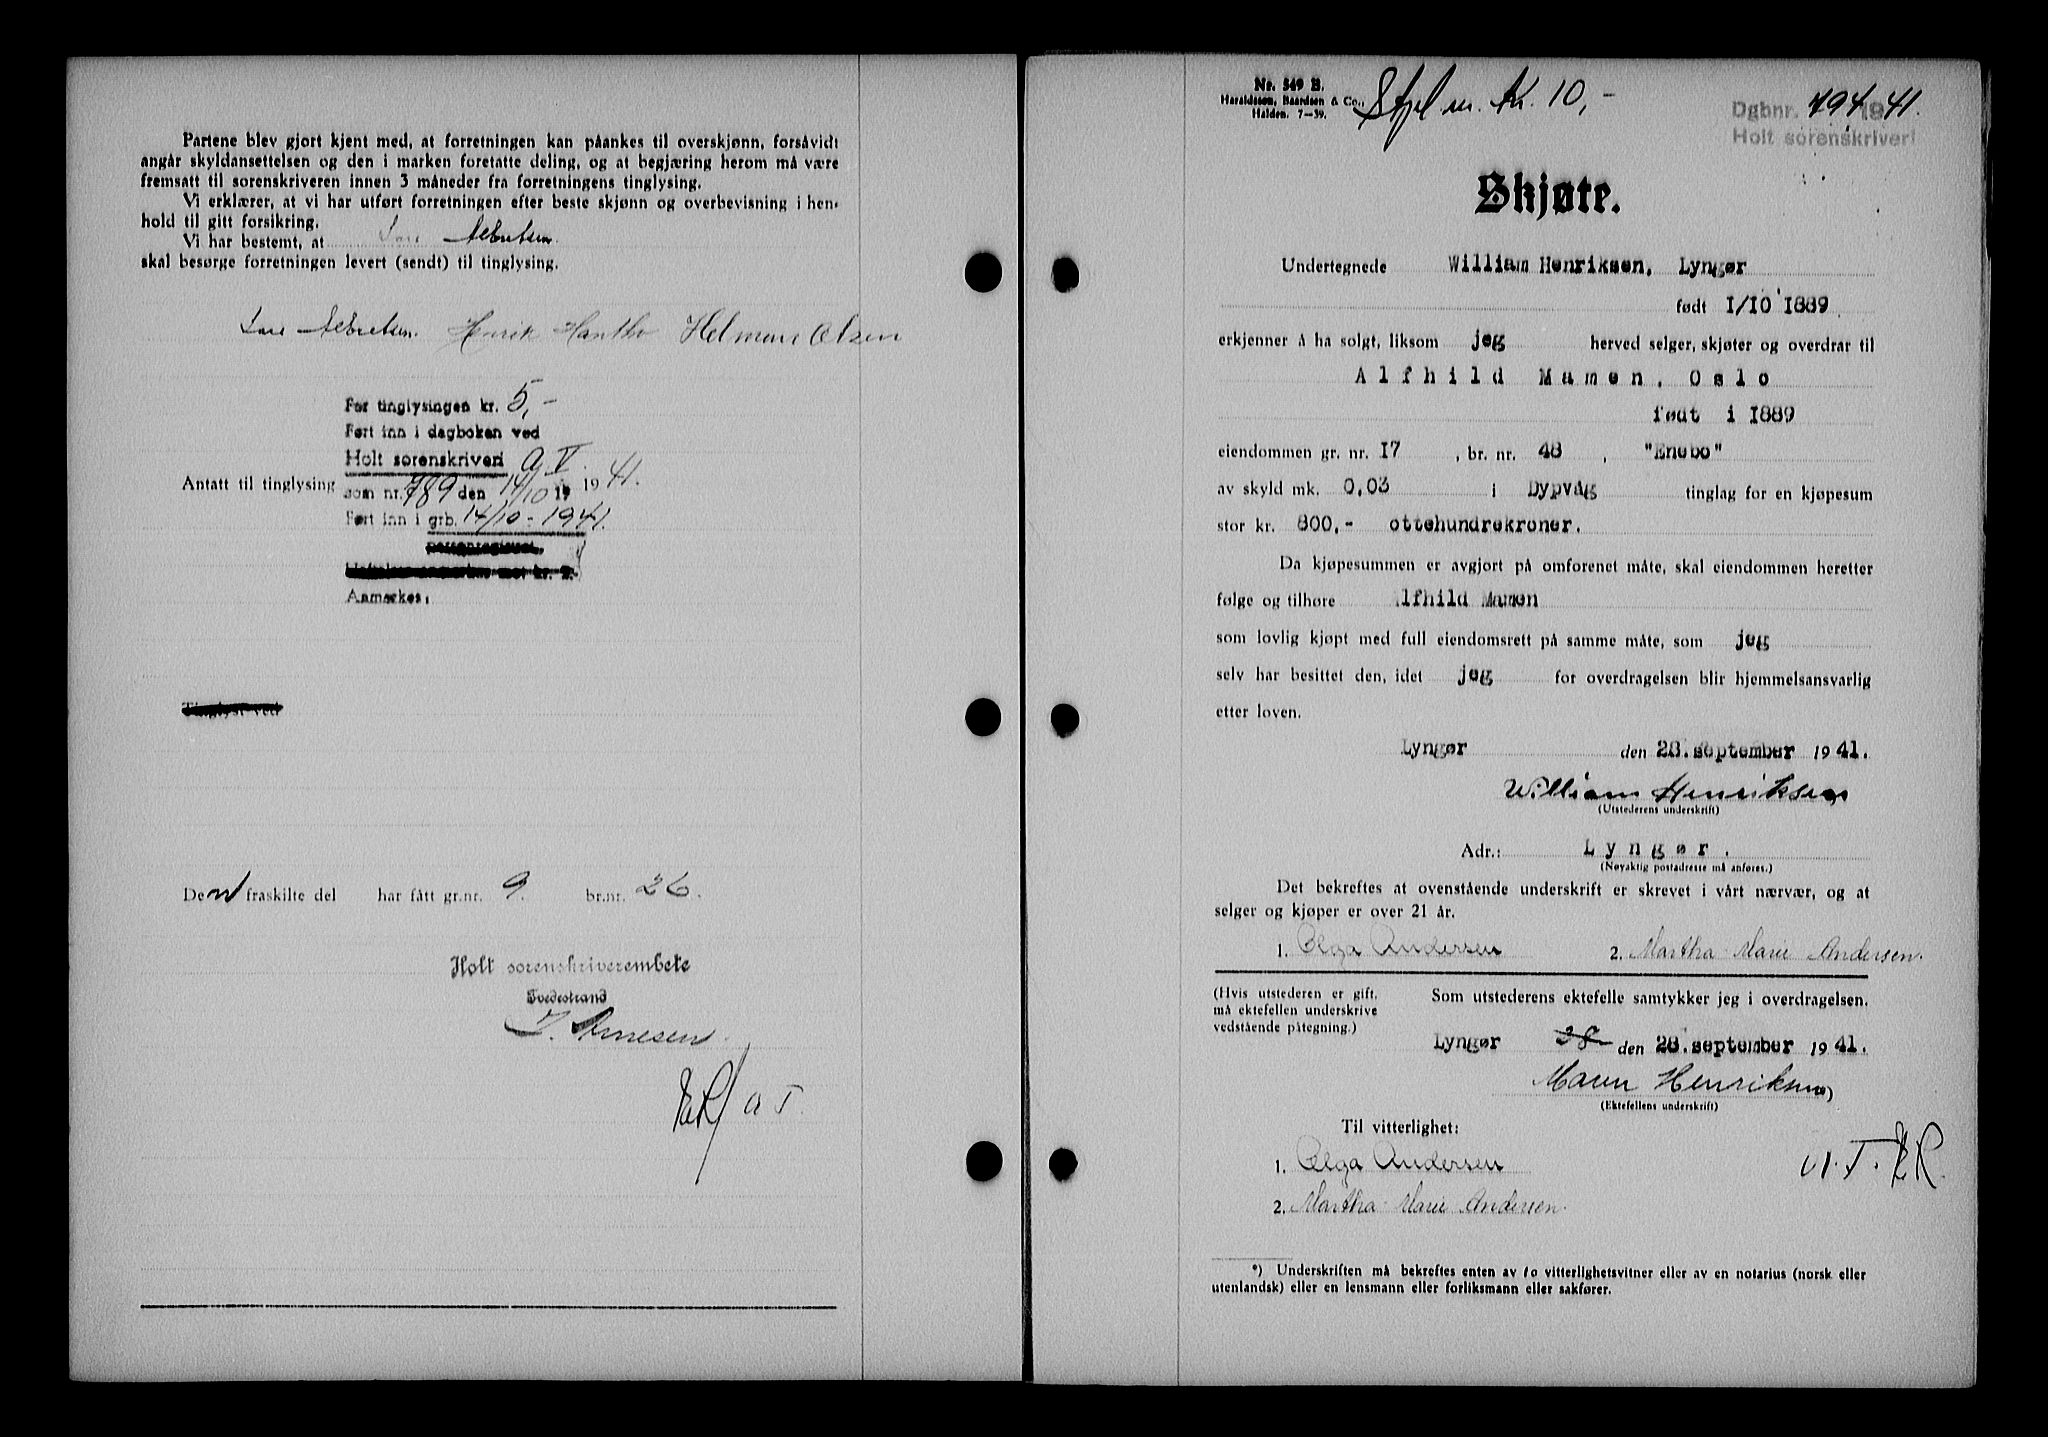 Partene blev gjort kjent med, at forretningen kan påankes til overskjønn, forsåvidt
angår skyldansettelsen og den i marken foretatte deling, og at begjæring herom må være
fremsatt til sorenskriveren innen 3 måneder fra forretningens tinglysing.
Vi erklærer, at vi har utført forretningen efter beste skjønn og overbevisning i hen-
hold til gitt forsikring.
Vi har bestemt, at Lars Albretsen
skal besørge forretningen levert (sendt) til tinglysing.
Lars Albretsen. Henrik Hantho Helmuer Olsen
For tinglysingen kr. 5,-
Ført inn i dagboken ved
Holt sorenskriveri
Antatt til tinglysing som nr. 789 den 14/10 1941.
Ført inn i grb. 14/10-1941.
Aamerkes:
Den fraskilte del har fått gr.nr. 9. br.nr. 26.
Holt sorenskriverembete
Tvedestrand
J. Arnesen
ER/ a T.
Nr. 549 B.
Haraldssøn, Baardsen & Co.,
Halden. 7—39.
Stpl m. Kr. 10,-
Dgbnr. 794 1941.
Holt sorenskriveri
Skjøte.
Undertegnede William Henriksen, Lyngør
født 1/10 1889.
erkjenner å ha solgt, liksom jeg herved selger, skjøter og overdrar til
Alfhild Mamen, Oslo
født i 1889
eiendommen gr. nr. 17, br. nr. 48, "Enebo"
av skyld mk. 0,03 i Dypvåg tinglag for en kjøpesum
stor kr. 800,- ottehundrekroner.
Da kjøpesummen er avgjort på omforenet måte, skal eiendommen heretter
følge og tilhøre Alfhild Mamen
som lovlig kjøpt med full eiendomsrett på samme måte, som jeg
selv har besittet den, idet jeg for overdragelsen blir hjemmelsansvarlig
etter loven.
Lyngør den 28. september 1941.
William Henriksen
(Utstederens underskrift)
Adr.: Lyngør.
(Nøyaktig postadresse må anføres.)
Det bekreftes at ovenstående underskrift er skrevet i vårt nærvær, og at
selger og kjøper er over 21 år.
1. Olga Andersen 2. Martha Marie Andersen.
(Hvis utstederen er gift,
må ektefellen underskrive
vedstående påtegning.)
Som utstederens ektefelle samtykker jeg i overdragelsen.
Lyngør 28 den 28. september 1941.
Maren Henriksen
(Ektefellens underskrift)
Til vitterlighet:
1. Olga Andersen
2. Martha Marie Andersen.
a. T. ER.
*) Underskriften må bekreftes enten av to vitterlighetsvitner eller av en notarius (norsk eller
utenlandsk) eller en lensmann eller forliksmann eller sakfører.